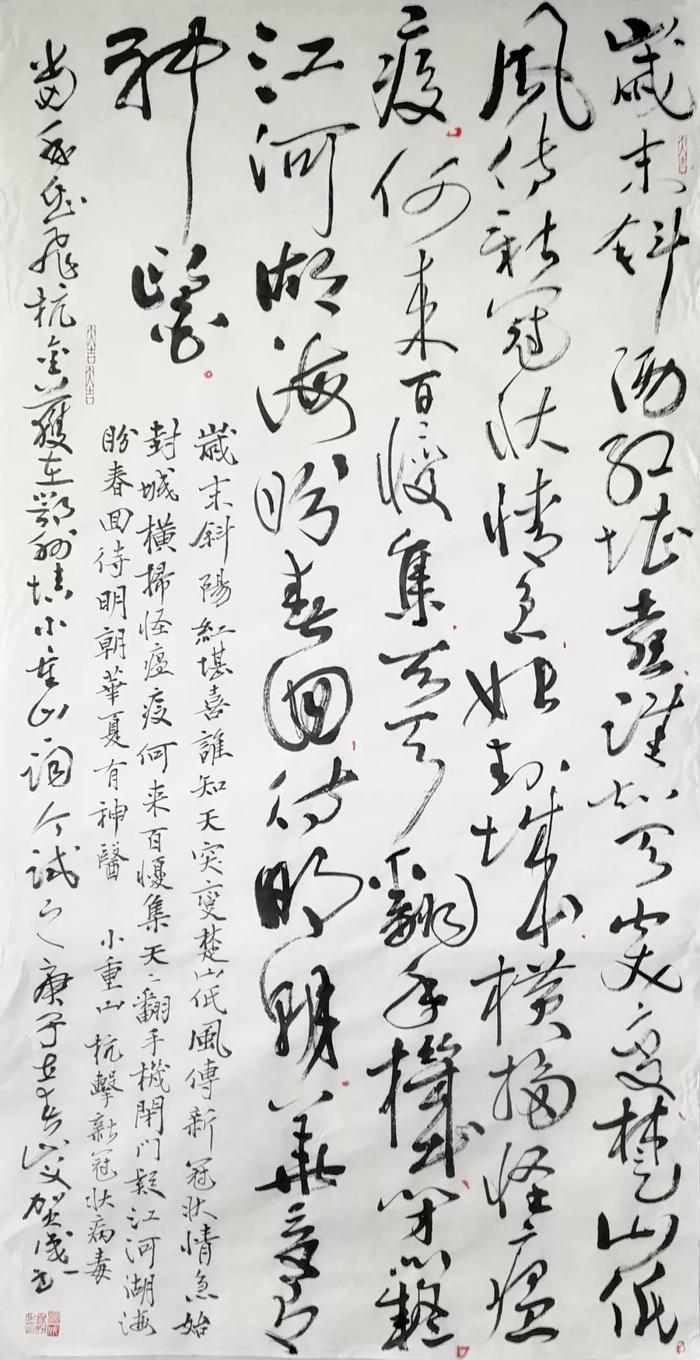 歲末斜陽紅堪喜誰知天突變楚山低
風傳新冠狀情急始封城橫掃怪瘟
疫何來百憂集天天翻手機閉門疑
江河湖海盼春回待明朝華夏有
神醫
歲末斜陽紅堪喜誰知天突變楚山低風傳新冠狀情急始
封城橫掃怪瘟疫何来百憂集天〻翻手機閉門疑江河湖海
盼春回待明朝華夏有神醫 小重山 抗擊新冠狀病毒
當年岳飛抗金獲在鄂州填小重山詞今試之庚子立春